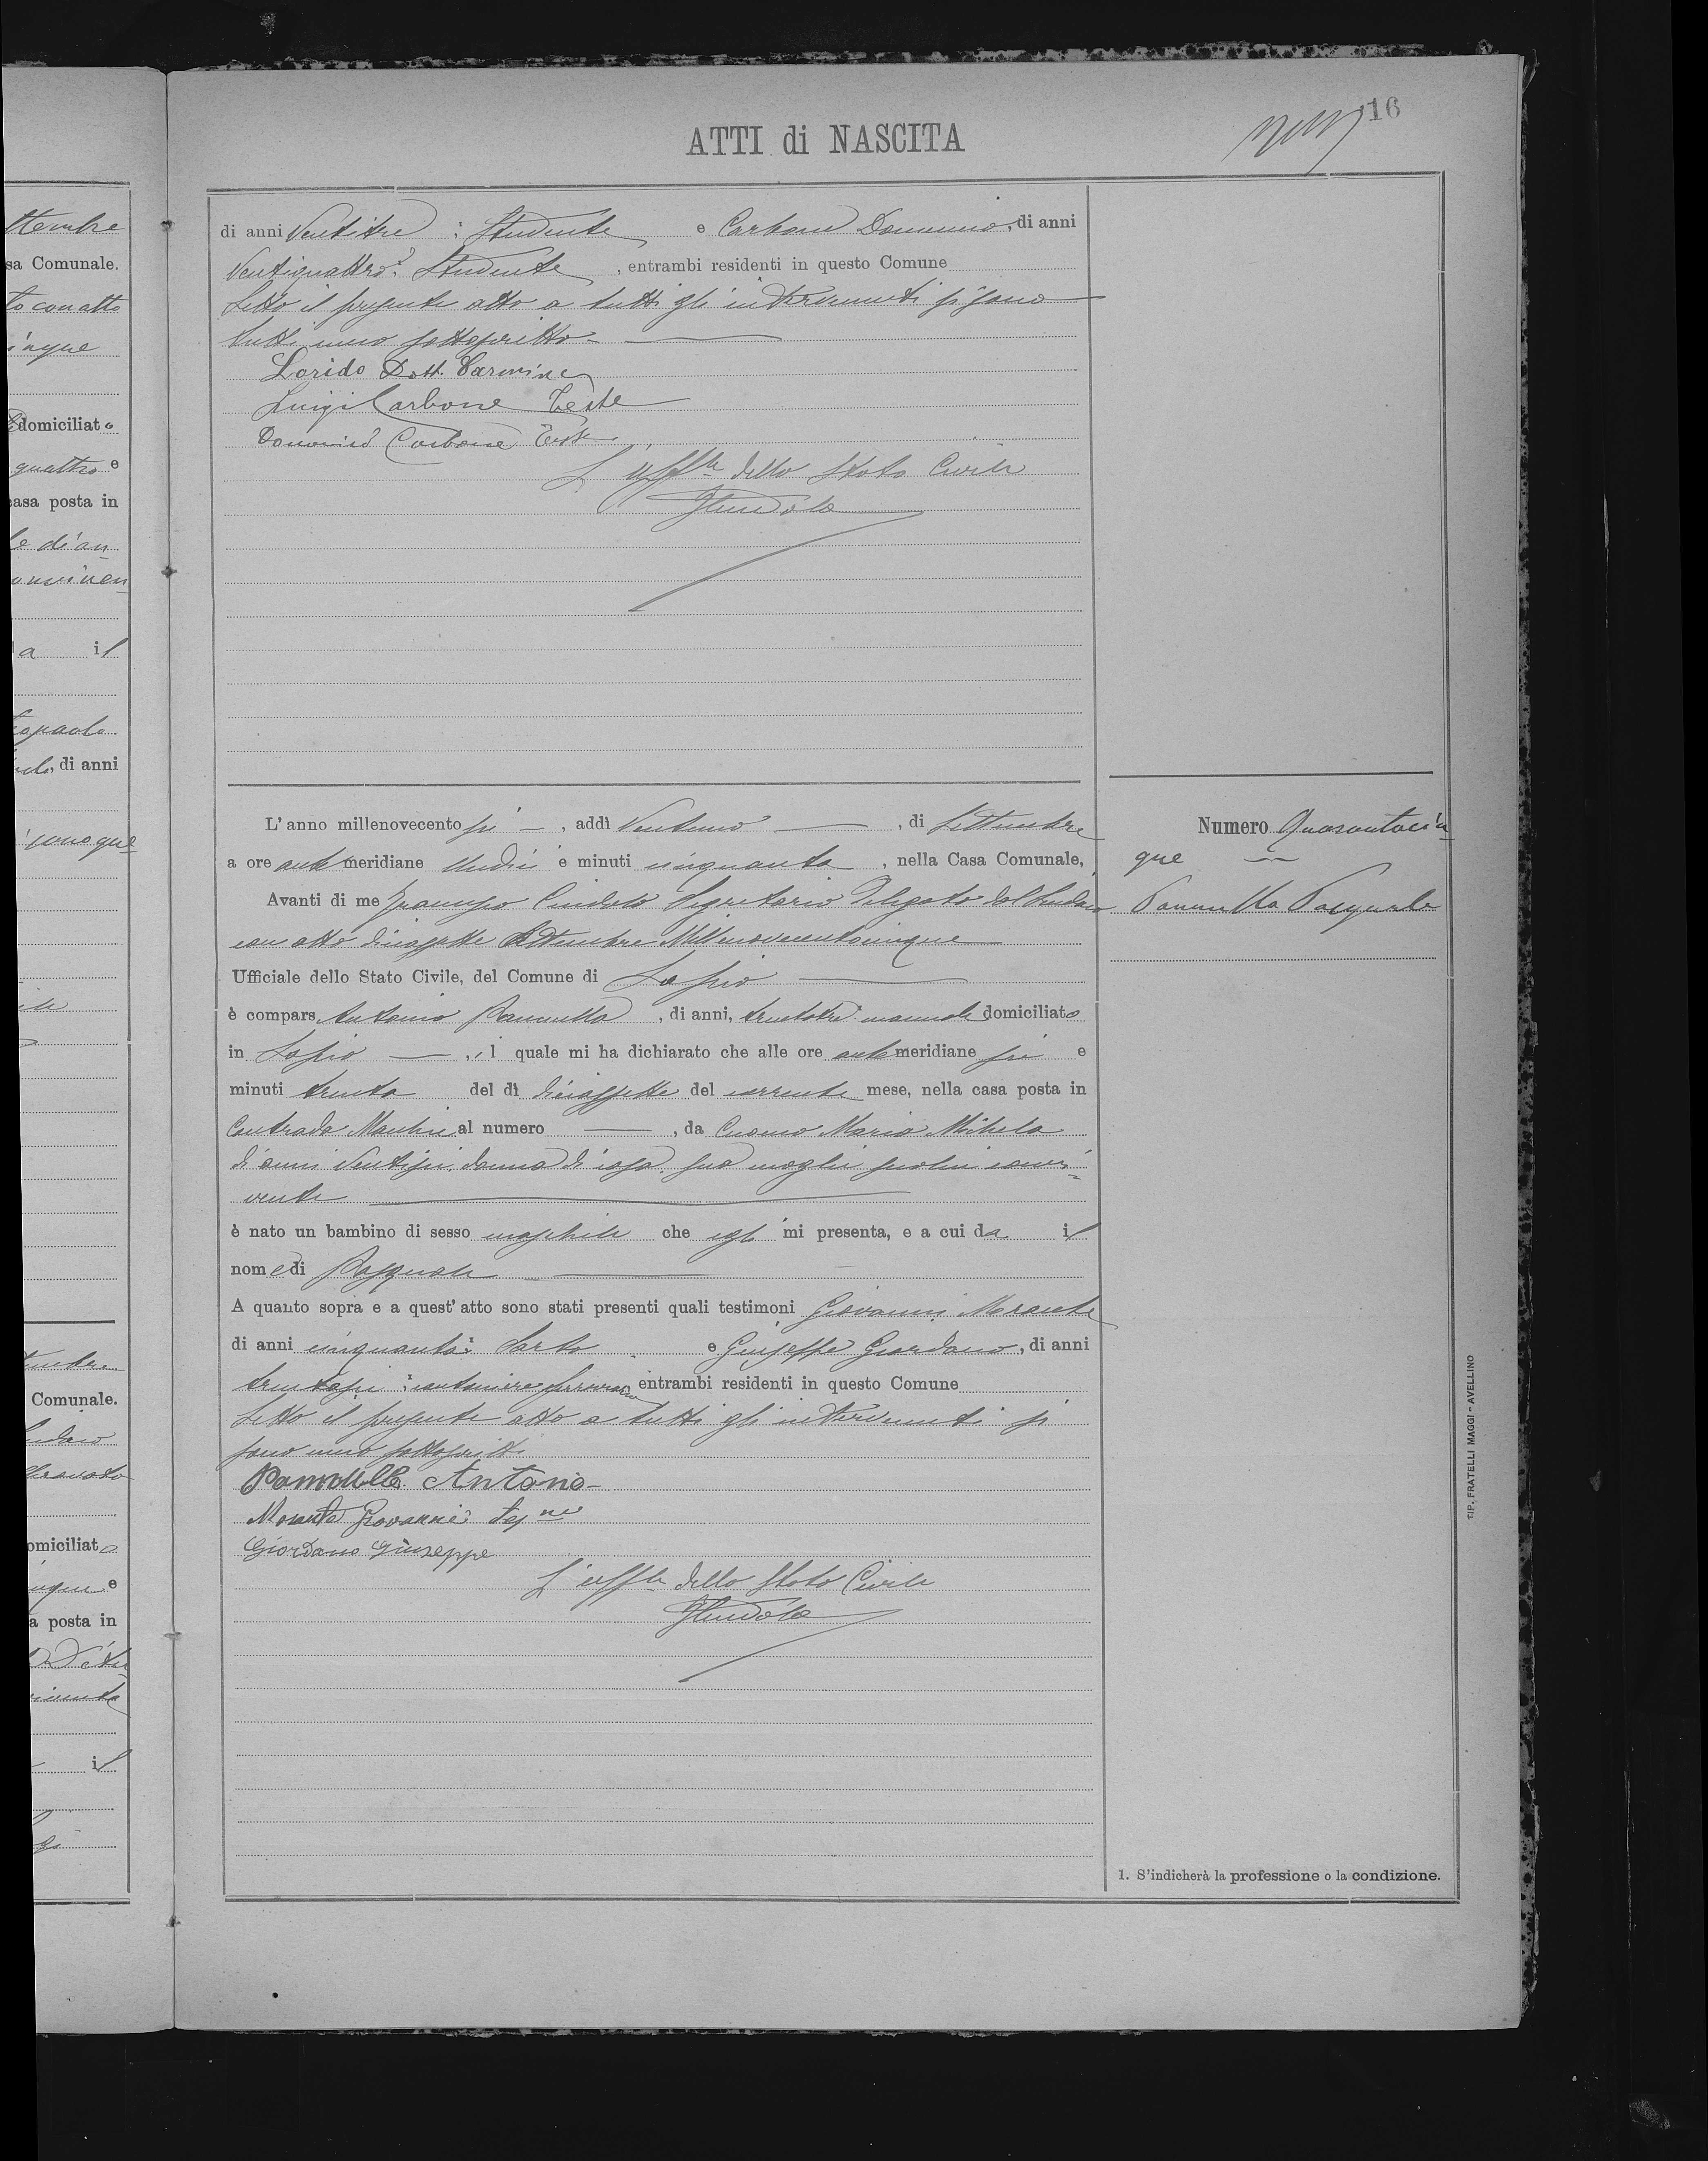 16
ATTI di NASCITA
di anni Ventitre : Studente e Carbone Domenico, di anni
Ventiquattro: Studente, entrambi residenti in questo Comune
Letto il presente atto a tutti gli intervenuti si sono
tutti meco sottoscritto
Lorido Dott. Carmine
Luigi Carbone Teste
Domenico Carbone Teste
L'Uff.le dello Stato Civile
L'anno millenovecento sei —, addì Ventuno —, di Settembre
a ore anti meridiane Undici e minuti cinquanta, nella Casa Comunale,
Avanti di me Segretario Delegato dal Sindaco
con atto diciassette Settembre Millenovecentocinque
Ufficiale dello Stato Civile, del Comune di Lapio
è compars Antonio Pannella, di anni, trentatre manuale domiciliato
in Lapio —, il quale mi ha dichiarato che alle ore antemeridiane sei e
minuti trenta del dì diciassette del corrente mese, nella casa posta in
Contrada al numero —, da Cuomo Maria Michela
di anni Ventisei, donna di casa, sua moglie seco lui convi-
vente
è nato un bambino di sesso maschile che egli mi presenta, e a cui da il
nome di Pasquale —
A quanto sopra e a quest'atto sono stati presenti quali testimoni Giovanni Morante
di anni cinquanta: Sarto e Giuseppe Giordano, di anni
trentasei : cantoniere ferroviario entrambi residenti in questo Comune
Letto il presente atto a tutti gli intervenuti si
sono meco sottoscritti
Pannella Antonio
Morante Giovanni
Giordano Giuseppe
L'uff.le dello Stato Civile
Numero Quarantacin
que
Pannella Pasquale
1. S'indicherà la professione o la condizione.
TIP. FRATELLI MAGGI - AVELLINO
ttembre
sa Comunale.
to con atto
inque
domiciliato
quattro e
casa posta in
le di an
a il
di anni
Comunale.
domiciliato
e
a posta in
il